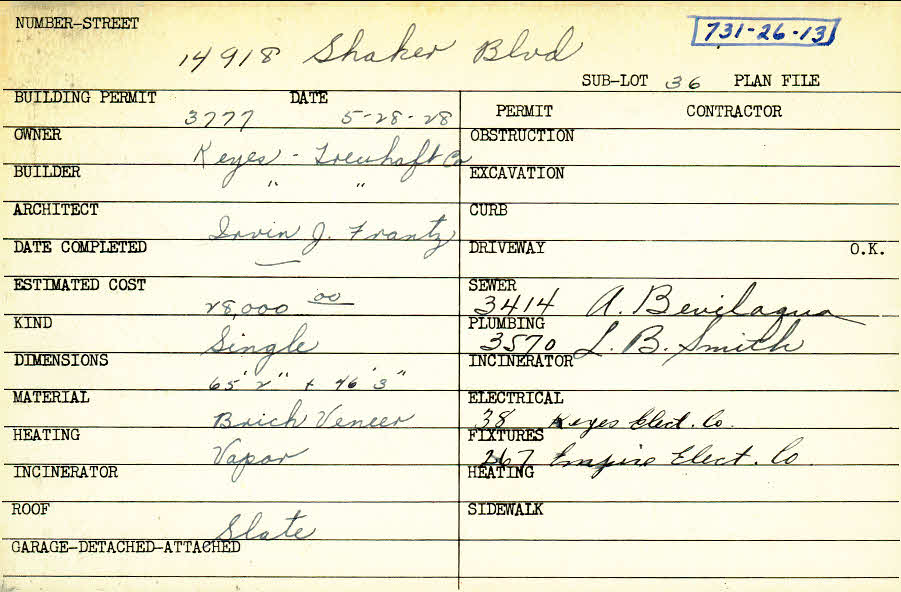 NUMBER-STREET
731-26-13
14918 Shaker Blvd
SUB-LOT 36 PLAN FILE
BUILDING PERMIT DATE
3777 5-28-28
OWNER
Keyes - Treuhaft Co
BUILDER
" "
ARCHITECT
Irvin J. Frantz
DATE COMPLETED
ESTIMATED COST
28,000 00
KIND
Single
DIMENSIONS
65' 2" + 46' 3"
MATERIAL
Brick Veneer
HEATING
Vapor
INCINERATOR
ROOF
Slate
GARAGE-DETACHED-ATTACHED
PERMIT CONTRACTOR
OBSTRUCTION
EXCAVATION
CURB
DRIVEWAY O.K.
SEWER
3414 A. Bevilaqua
PLUMBING
3570 L. B. Smith
INCINERATOR
ELECTRICAL
38 Keyes Elect. Co.
FIXTURES
267 Empire Elect. Co
HEATING
SIDEWALK